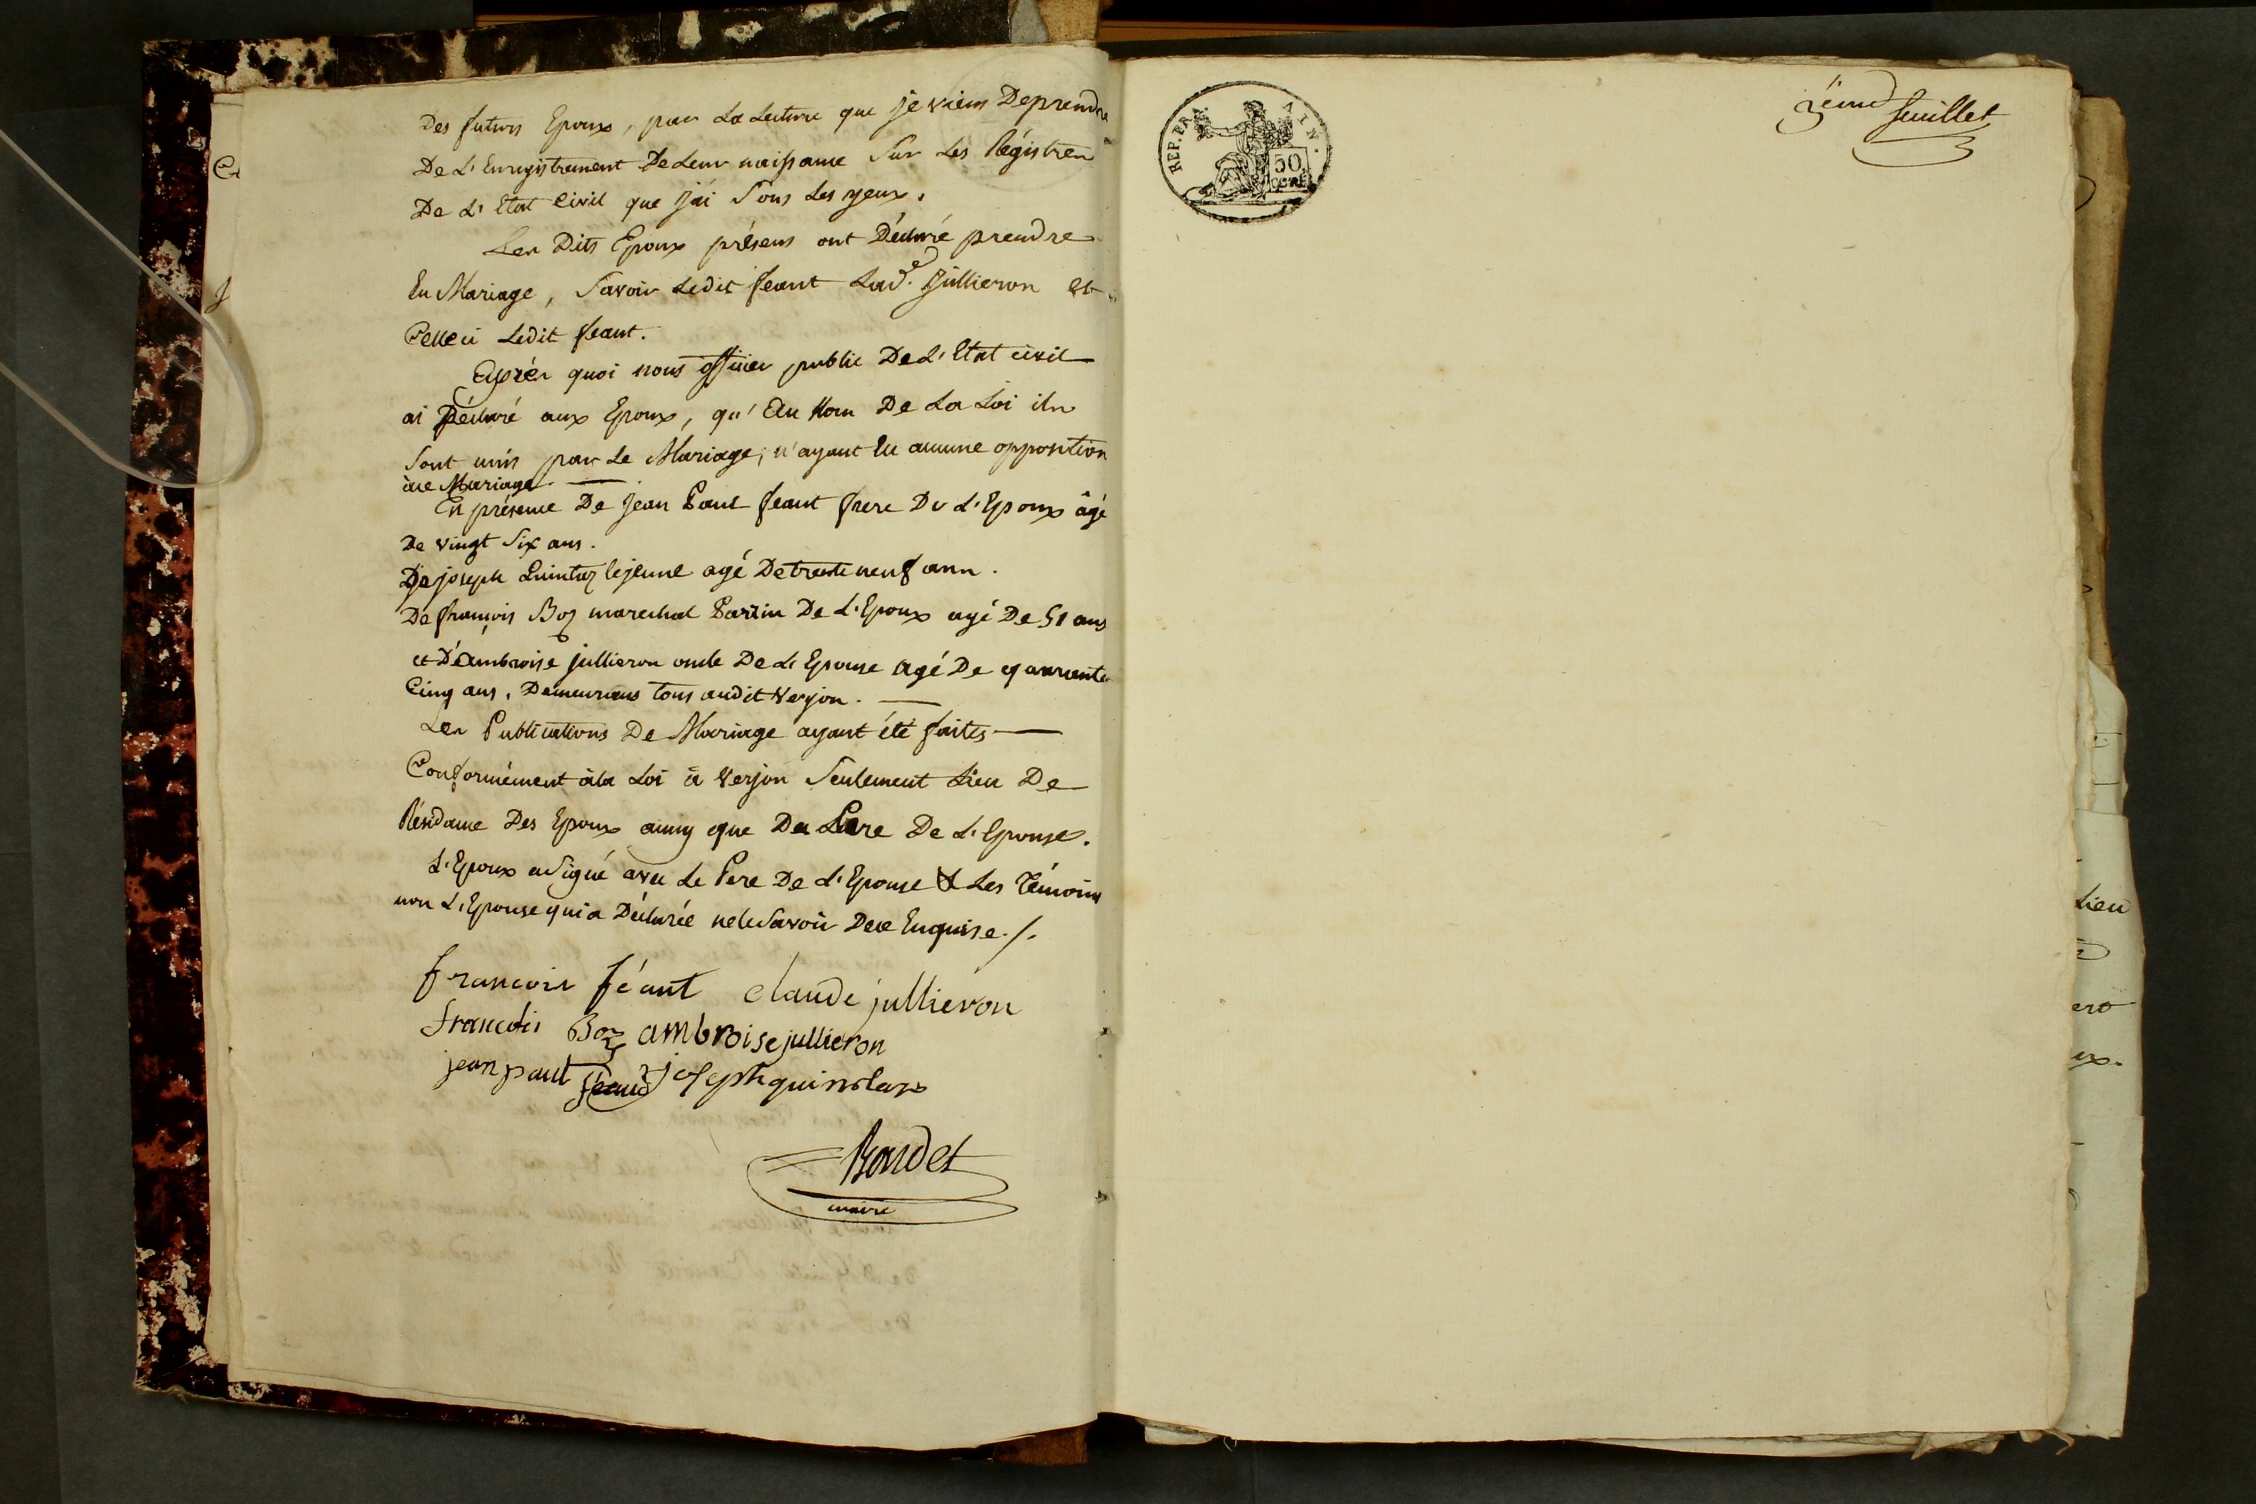 Des futurs Epoux, par La Lecture que je viens De prendre
De L'Enregistrement De Leur naissance Sur Les Régistres
De L'Etat Civil que j'ai Sous Les yeux.
Les Dits Epoux présens ont Déclaré prendre
En Mariage, Savoir Ledit feant Lade. Jullieron et
Celleci Ledit feant.
Après quoi nous officier public De L'Etat civil
ai Déclaré aux Epoux, qu'Au Nom De La Loi ils
Sont unis par Le Mariage, n'ayant Eu aucune opposition
àce Mariage.
En présence De Jean Paul feant frere De L'Epoux âgé
De vingt Six ans.
De joseph Quintaz lejeune agé De trente neuf ans.
De françois Boz marechal Parrin De L'Epoux agé De 51 ans
et D'Ambroise jullieron oncle De L'Epouse agé De quarante
Cinq ans, Demeurans Tous audit Verjon.
Les Publications De Mariage ayant été faites
Conformément àla Loi à Verjon Seulement Lieu De
Résidance Des Epoux ainsy que Du Pere De L'Epouse.
L'Epoux a Signé avec Le Pere De L'Epouse & Les Témoins
non L'Epouse qui a Déclarée ne le Savoir De ce Enquise ./.
francois féant claude jullieron
francois Boz ambroise jullieron
jean paul feant joseph quinstaz
Bondet
maire
REP. FRA. AIN.
50
CENT.
3eme feuillet
Lieu
ero
ux.